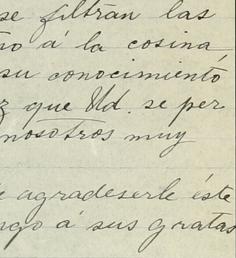 se filtran las
ño á la cosina
su conocimiento
z que Ud. se per
nosotros muy
e agradeserle éste
ngo á sus gratas